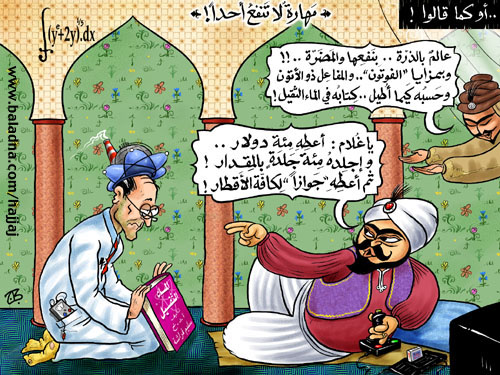 ..أو كما قالوا !
«مَهارةٌ لا تَنفعُ أحداً!»
∫(y²+2y)^⅓.dx
عالمٌ بالذرّة .. بنَفعِها والمَضرّة ..!!
وبمزايا "الفوتون".. والمفاعل ذو الأتون
وحَسبُه كَيما أُطيل.. كتابه في الماء الثقيل!
يا غُلام: أعطِهِ مِئة دولار ..
واجلِدهُ مِئة جَلدةٍ بالمِقدار !
ثم أعطِهِ "جَوازاً" لكافة الأقطار!
الماء
الثقيل
www.baladna.com/hallaj